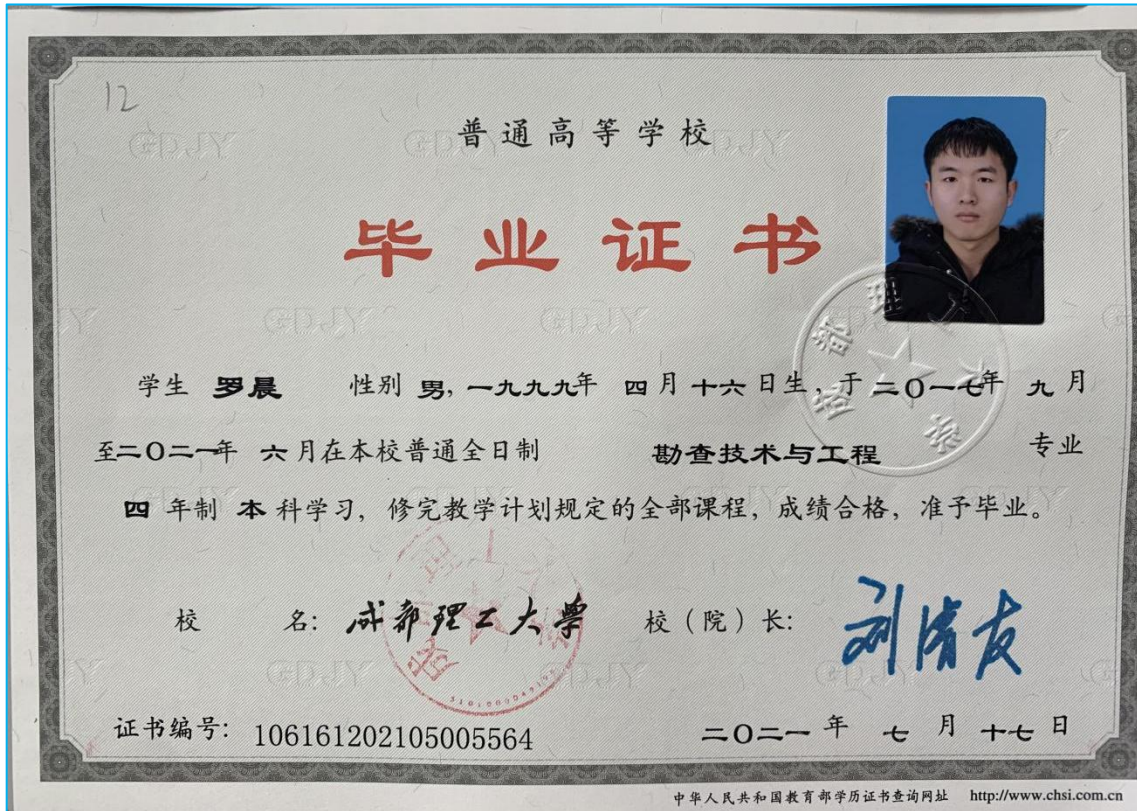 12
普通高等学校
毕业证书
学生 罗晨 性别 男, 一九九九年 四月十六日生, 于二〇一七年 九月
至二〇二一年 六月在本校普通全日制 勘查技术与工程 专业
四 年制 本 科学习, 修完教学计划规定的全部课程, 成绩合格, 准予毕业。
校 名: 成都理工大学 校(院)长: 刘清友
证书编号: 106161202105005564 二〇二一 年 七 月 十七 日
中华人民共和国教育部学历证书查询网址 http://www.chsi.com.cn
GDJY
成都理工大学
成都理工大学